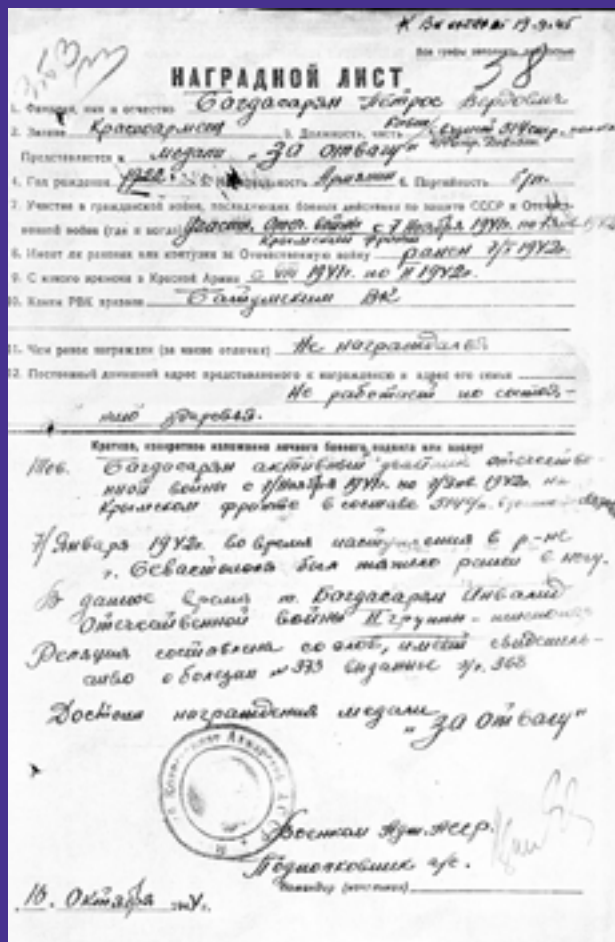 К Вх 19.9.45
Все графы заполнять полностью
38
НАГРАДНОЙ ЛИСТ
1. Фамилия, имя и отчество Багдасарян Петрос Вердович
2. Звание Красноармеец 3. Должность, часть
Представляется к медали „За отвагу"
4. Год рождения 1922 г. 5. Национальность Армянин 6. Партийность б/п.
7. Участие в гражданской войне, последующих боевых действиях по защите СССР и Отечест-
венной войне (где и когда) Участн. Отеч. войны с 7 Ноября 1941г. по
Крымский фронт
8. Имеет ли ранения или контузии за Отечественную войну ранен 7/I 1942г.
9. С какого времени в Красной Армии с VIII 1941г. по II 1942г.
10. Каким РВК призван Батумским ВК
11. Чем ранее награжден (за какие отличия) Не награждался
12. Постоянный домашний адрес представляемого к награждению и адрес его семьи
Не работает по состоя-
нию здоровья.
Краткое, конкретное изложение личного боевого подвига или заслуг
Тов. Багдасарян активный участник отечестве-
нной войны с 7/Ноября 1941г. по 7/Янв. 1942г. на
Крымском фронте в составе
7/Января 1942г. во время наступления в р-не
г. Севастополя был тяжело ранен в ногу.
В данное время т. Багдасарян Инвалид
Отечественной войны II группы
Реляция составлена со слов, имеет свидетель-
ство о болезни № 373 выданные э/г. 368
Достоин награждения медали
„За отвагу"
Военком Адж. АССР.
Подполковник а/с.
Командир (начальник)
16. Октября